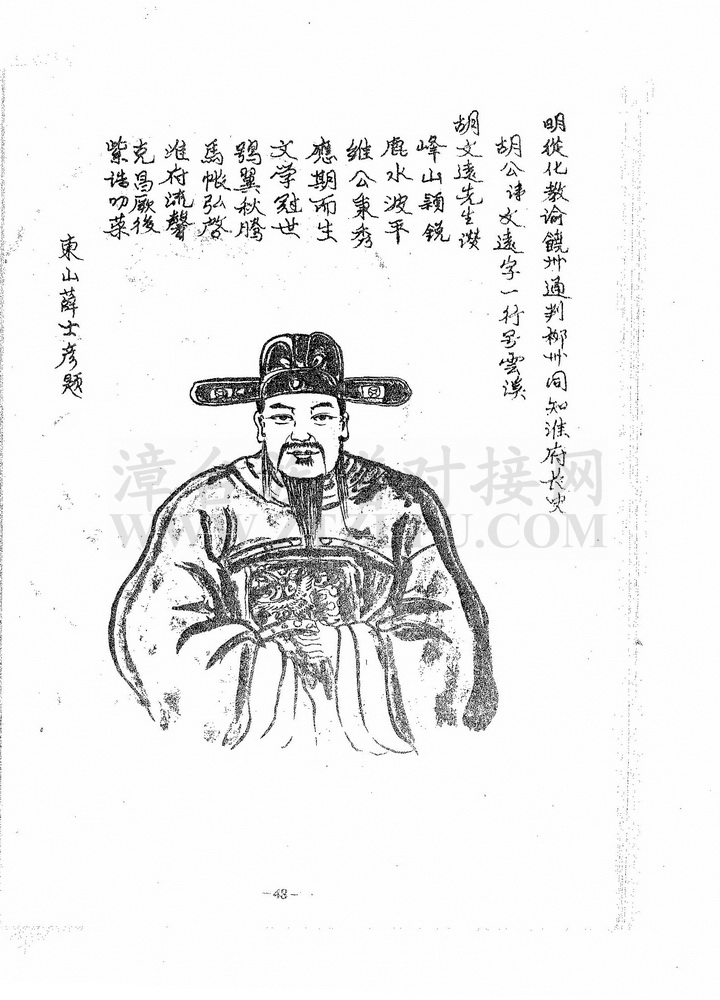 明從化教諭饒州通判郴州同知淮府長史
胡公諱文遠字一行号雲溪
胡文遠先生讚
峰山穎銳
鹿水波平
維公秉秀
應期而生
文学冠世
鶚翼秋騰
馬帳弘啓
淮府流馨
克昌厥後
紫誥叨荣
東山薛士彥題
漳台族谱对接网
WWW.ZTZUPU.COM
-48-